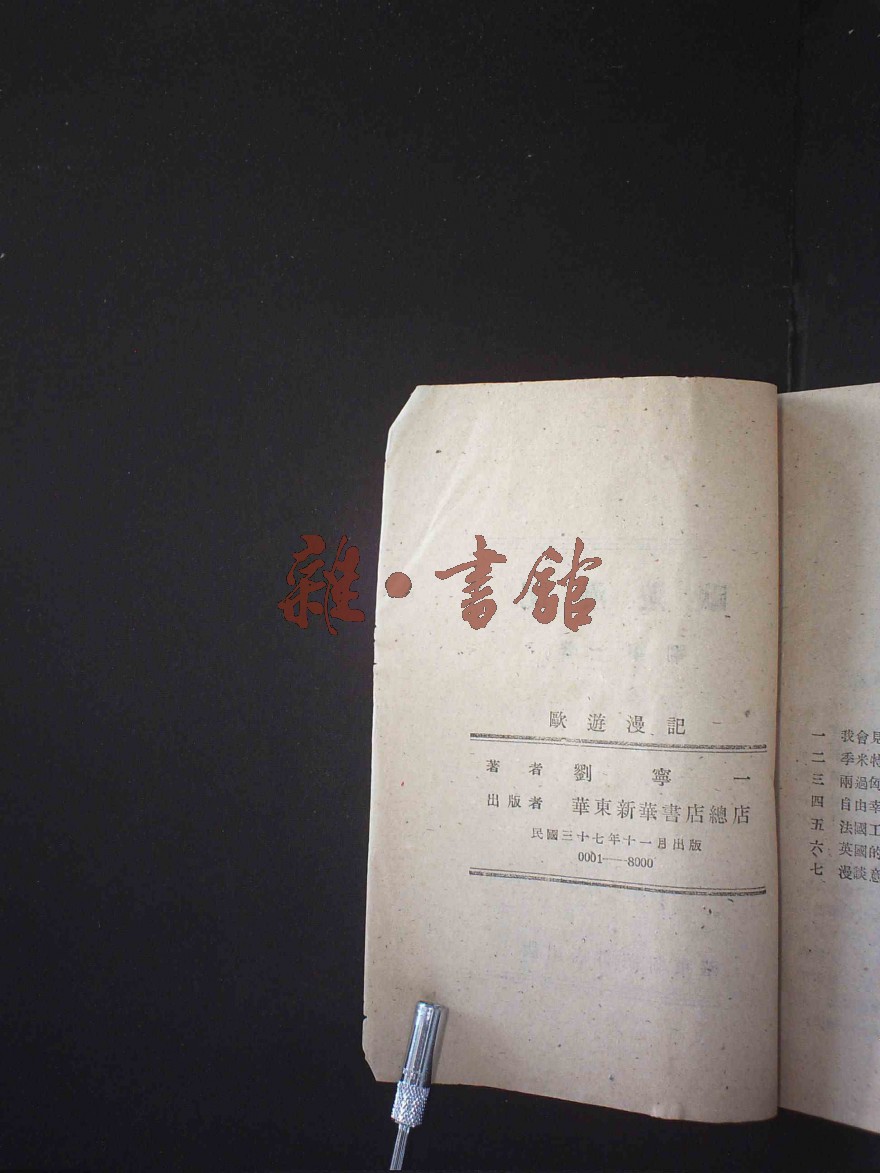 雜·書館
歐遊漫記
著者 劉寧一
出版者 華東新華書店總店
民國三十七年十一月出版
0001——8000
一 我會見
二 季米特
三 兩過匈
四 自由幸
五 法國工
六 英國的
七 漫談意